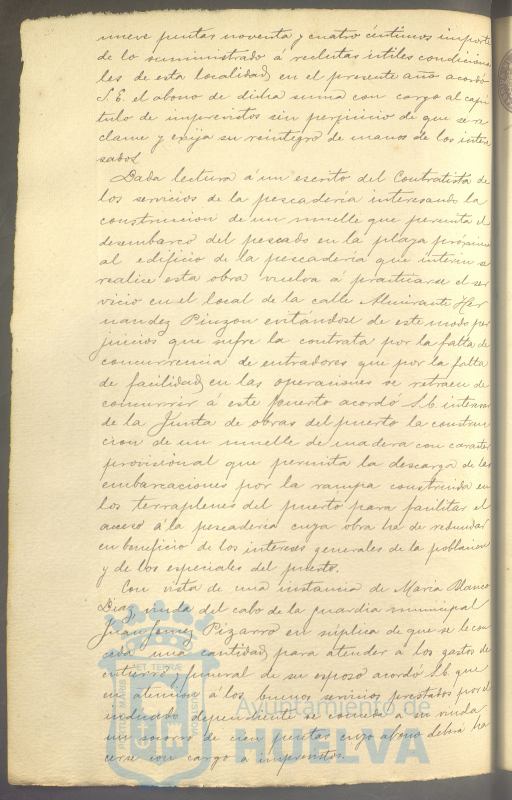 nueve pesetas noventa y cuatro céntimos importe
de lo suministrado á reclutas útiles condiciona
les de esta localidad, en el presente año acordó
S. E. el abono de dicha suma con cargo al capi
tulo de imprevistos sin perjuicio de que se re
clame y exija su reintegro de manos de los intere
sados.
Dada lectura á un escrito del Contratista de
los servicios de la pescadería interesando la
construccion de un muelle que permita el
desembarco del pescado en la plaza próxima
al edificio de la pescadería que interin se
realice esta obra vuelva á practicarse el ser
vicio en el local de la calle Almirante Her
nandez Pinzon evitándose de este modo per
juicios que sufre la contrata por la falta de
concurrencia de entradores que por la falta
de facilidad en las operaciones se retraen de
concurrir á este puerto acordó S. E. interesar
de la Junta de obras del puerto la construc
cion de un muelle de madera con carácter
provisional que permita la descarga de las
embarcaciones por la rampa construida en
los terraplenes del puerto para facilitar el
acceso á la pescadería cuya obra ha de redundar
en beneficio de los intereses generales de la poblacion
y de los especiales del puerto.
Con vista de una instancia de Maria Blanco
Diaz, viuda del cabo de la guardia municipal
Juan Gomez Pizarro en súplica de que se le con
ceda una cantidad para atender á los gastos de
entierro y funeral de su esposo acordó S. E. que
en atencion á los buenos servicios prestados por el
indicado dependiente se conceda á su viuda
un socorro de cien pesetas cuyo abono deberá ha
cerse con cargo a imprevistos.
Ayuntamiento de
HUELVA
PORTUS MARIS
ET TERRE
CUSTODIA